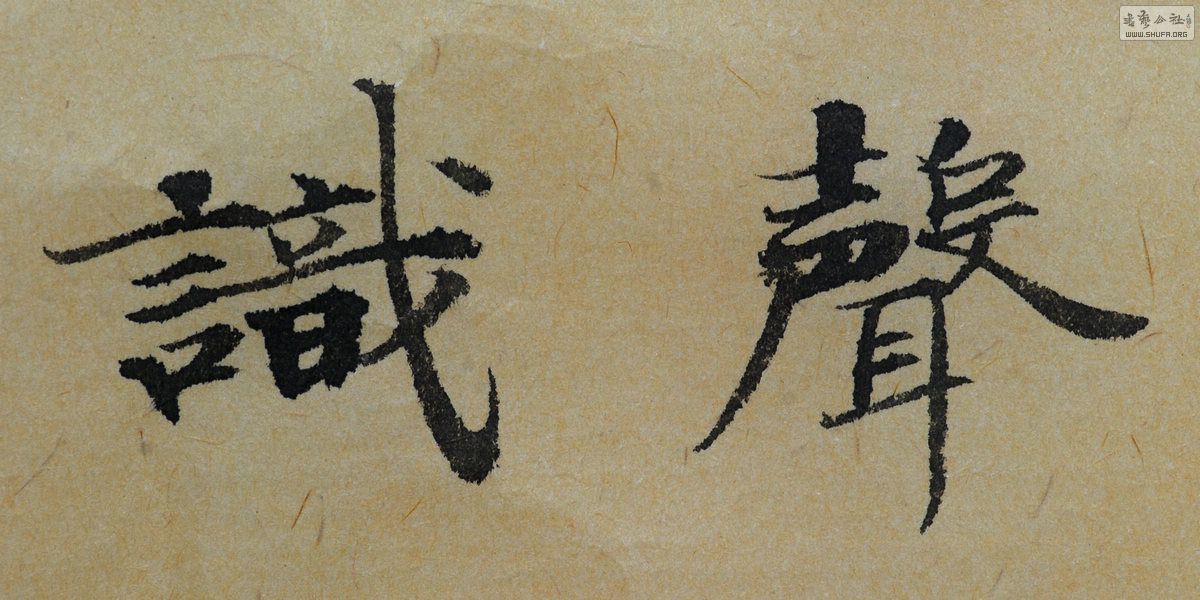 聲識
書藝公社
WWW.SHUFA.ORG